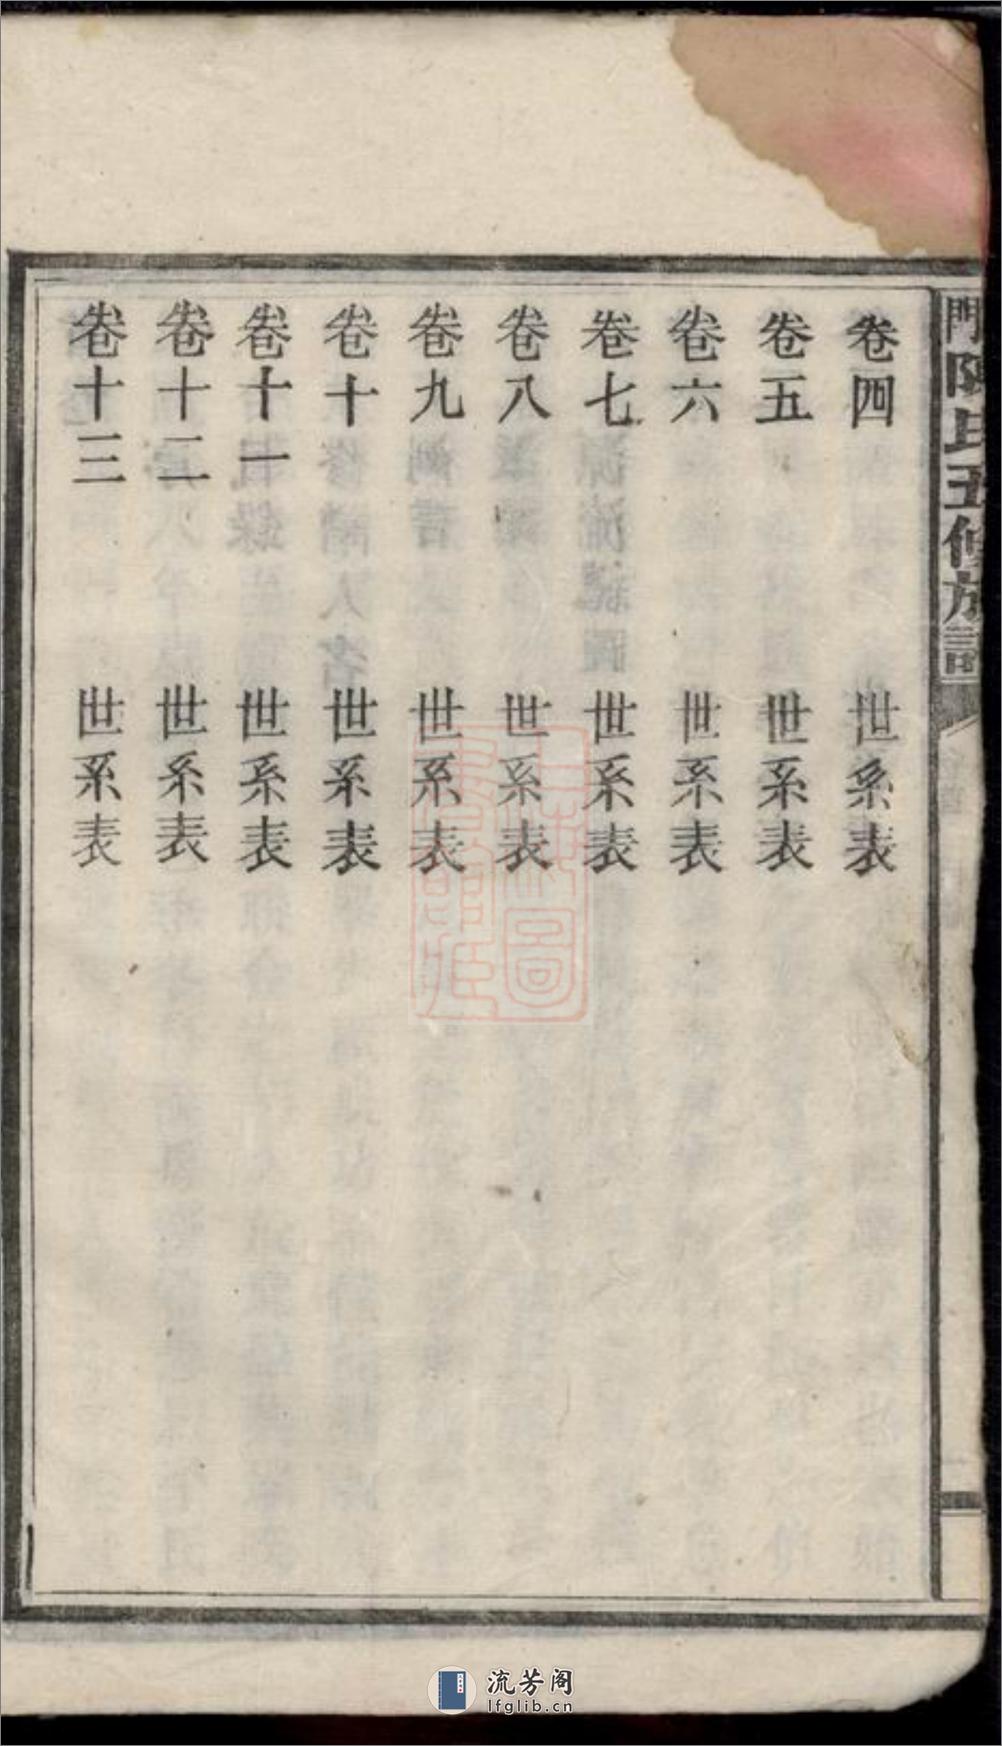 門陳氏五修族譜
卷四 世系表
卷五 世系表
卷六 世系表
卷七 世系表
卷八 世系表
卷九 世系表
卷十 世系表
卷十一 世系表
卷十二 世系表
卷十三 世系表
流芳阁
lfglib.cn